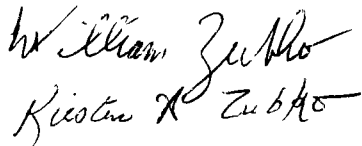 William Zubko
Kirsten A Zubko